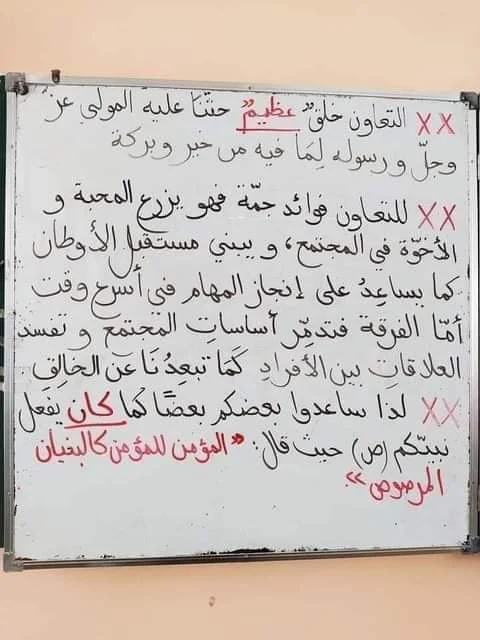 ×× التعاون خلقٌ عظيمٌ حثّنا عليه المولى عزّ
وجلّ ورسوله لِمَا فيه من خير وبركة
×× للتعاون فوائد جمّة فهو يزرع المحبة و
الأخوّة في المجتمع، و يبني مستقبل الأوطان
كما يساعِدُ على إنجاز المهام في أسرع وقت
أمّا الفرقة فتدمِّر أساساتِ المجتمع و تفسد
العلاقاتِ بين الأفرادِ كَمَا تبعِدُنَا عن الخالِقِ
×× لذا ساعدوا بعضكم بعضًا كما كان يفعل
نبيّكم (ص) حيث قال: "المؤمن للمؤمن كالبنيان
المرصوص".